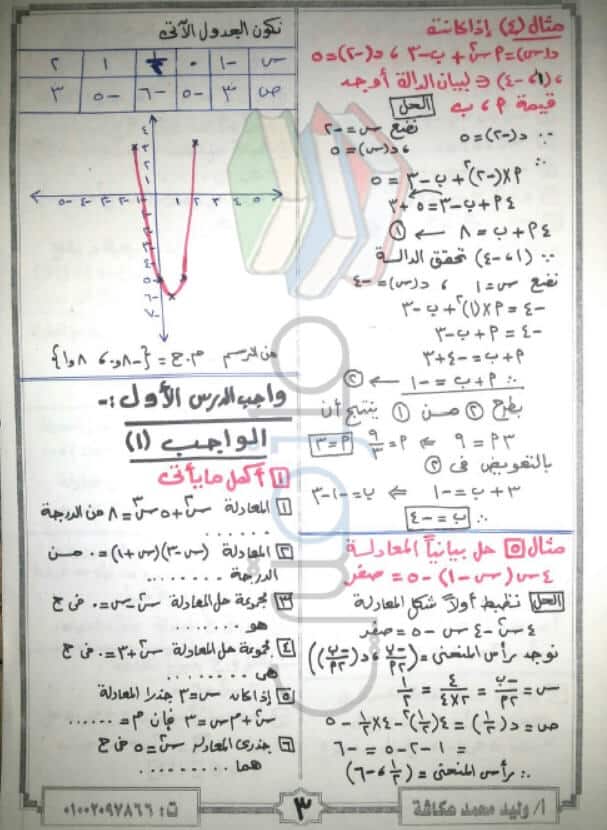 مثال (٤) إذا كانت
د(س) = ٢م س٢ + ب - ٣ ، د(-٢) = ٥
، (١، -٤) ∈ لبيان الدالة أوجد
قيمة م ، ب
الحل
نضع س = -٢
∵ د(-٢) = ٥
، د(س) = ٥
∴ م×(-٢)٢ + ب - ٣ = ٥
٤م + ب - ٣ = ٥ + ٣
٤م + ب = ٨ ← ①
∵ (١، -٤) تحقق الدالة
نضع س = ١ ، د(س) = -٤
-٤ = م×(١)٢ + ب - ٣
-٤ = م + ب - ٣
م + ب = -٤ + ٣
∴ م + ب = -١ ← ②
بطرح ② من ① ينتج أن
٣م = ٩ ⇐ م = ٩/٣ م = ٣
بالتعويض فى ②
٣ + ب = -١ ⇐ ب = -١ - ٣
∴ ب = -٤
مثال ٥ حل بيانياً المعادلة
٤س (س - ١) - ٥ = صفر
الحل نظبط أولاً شكل المعادلة
٤س٢ - ٤س - ٥ = صفر
نوجد رأس المنحنى = (-ب/٢م ، د(-ب/٢م))
س = -ب/٢م = ٤/٤×٢ = ١/٢
ص = د(١/٢) = ٤(١/٢)٢ - ٤×١/٢ - ٥
= ١ - ٢ - ٥ = -٦
∴ رأس المنحنى = (١/٢ ، -٦)
نكون الجدول الآتى
س -١ ٠ ١/٢ ١ ٢
ص ٣ -٥ -٦ -٥ ٣
٤
٣
٢
١
-٥ -٤ -٣ -٢ -١ ١ ٢ ٣ ٤ ٥
-١
-٢
-٣
-٤
-٥
-٦
-٧
من الرسم م.ح = {-٨و٠ ، ٨و١}
واجب الدرس الأول :-
الواجب (١)
١ أكمل ما يأتى
١ المعادلة س٢ + ٥س٣ = ٨ من الدرجة
.......
٢ المعادلة (س-٣)(س+١) = ٠ من
الدرجة ........
٣ مجموعة حل المعادلة س٢ - س = ٠ فى ح
هو .......
٤ مجموعة حل المعادلة س٢ + ٣ = ٠ فى ح
هى ........
٥ إذا كان س = ٣ جذرا لمعادلة
س٢ + م س = ٣ فإن م = ......
٦ جذرى المعادلة س٢ = ٥ فى ح
هما .........
أ/ وليد محمد عكاشة
٣
ت: ٠١٠٠٢٠٩٧٨٦٦